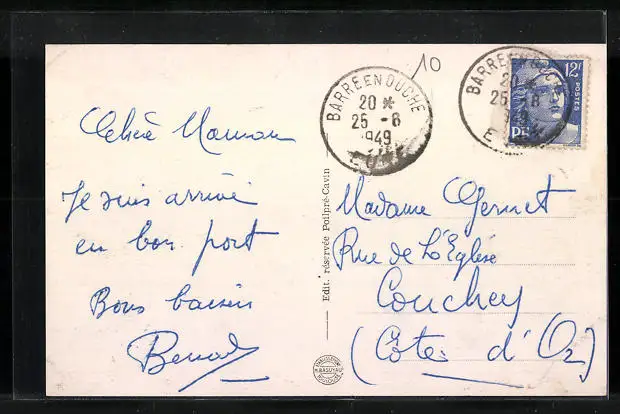 10
BARRE EN OUCHE
20 *
25 - 8
1949
BARRE EN OUCHE
20
25 - 8
1949
12F
POSTES
Chère Maman
Je suis arrivé
en bon port
Bons baisers
Benoit
Madame Gernet
Rue de L'Eglise
Couchey
(Côtes d'Or)
Edit. réservée Pailpré-Cavin